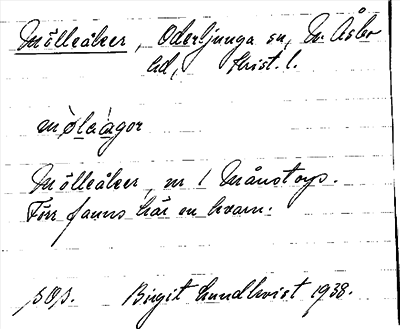 Mölleåker, Oderljunga sn, N. Åsbo
hd, Krist. l.
mø̀leàgor
Mölleåker, nr 1 Månstorps.
Förr fanns här en kvarn.
Birgit Lundkvist 1938.